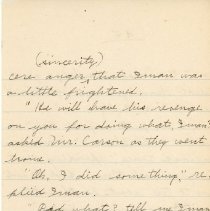 (sincerity)
cere anger, that Iman was
a little frightened.
"He will have his revenge
on you for doing what, Iman"
asked Mr. Carson as they went
home.
"Oh, I did something," re-
plied Iman.
"Bad what? tell me Iman